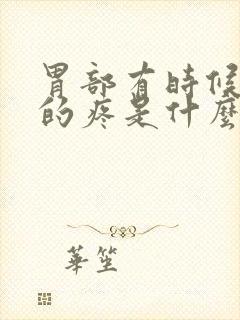 胃部有時候
的疼是什麼
華笙